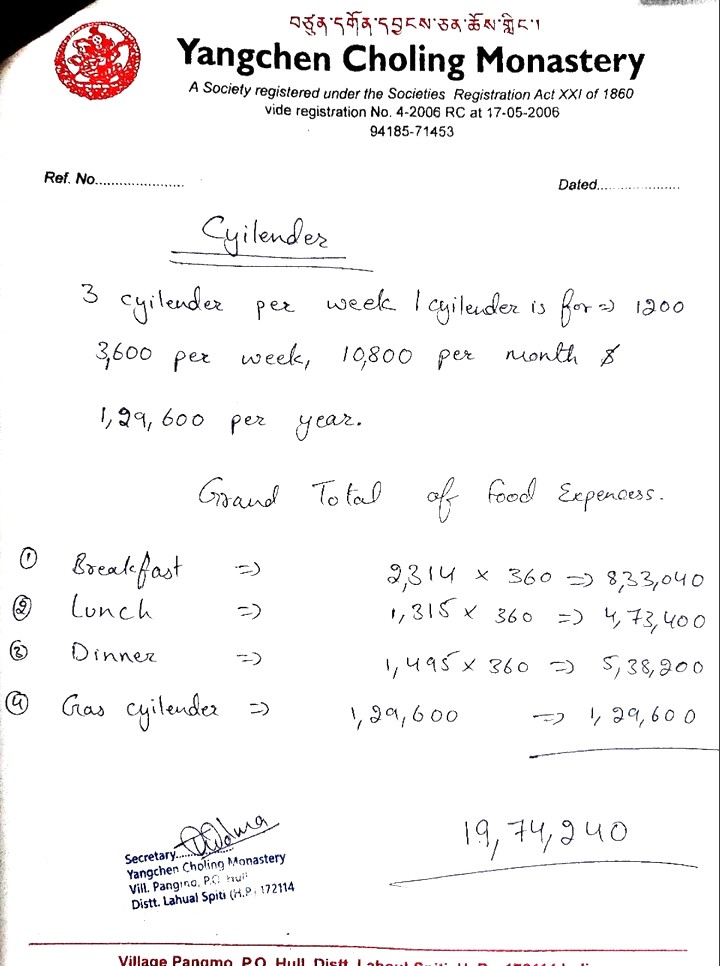 བཙུན་དགོན་དབྱངས་ཅན་ཆོས་གླིང་།
Yangchen Choling Monastery
A Society registered under the Societies Registration Act XXI of 1860
vide registration No. 4-2006 RC at 17-05-2006
94185-71453
Ref. No......................
Dated.....................
Cyilender
3 cyilender per week 1 cyilender is for => 1200
3,600 per week, 10,800 per month &
1,29,600 per year.
Grand Total of Food Expencess.
① Breakfast => 2,314 x 360 => 8,33,040
② Lunch => 1,315 x 360 => 4,73,400
③ Dinner => 1,495 x 360 => 5,38,200
④ Gas cyilender => 1,29,600 => 1,29,600
19,74,240
Secretary........
Yangchen Choling Monastery
Vill. Pangmo, P.O. Hull
Distt. Lahual Spiti (H.P) 172114
Village Pangmo, P.O. Hull, Distt.